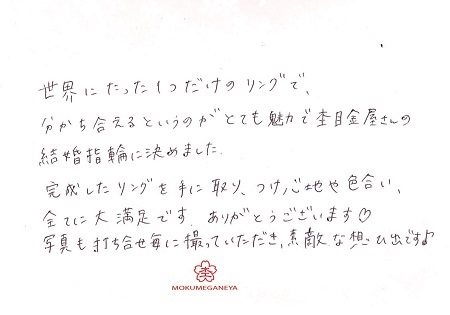 世界にたった1つだけのリングで、
分かち合えるというのがとても魅力で杢目金屋さんの
結婚指輪に決めました。
完成したリングを手に取り、つけ心地や色合い、
全てに大満足です。ありがとうございます♡
写真も打ち合せ毎に撮っていただき、素敵な想ひ出です♪
MOKUMEGANEYA